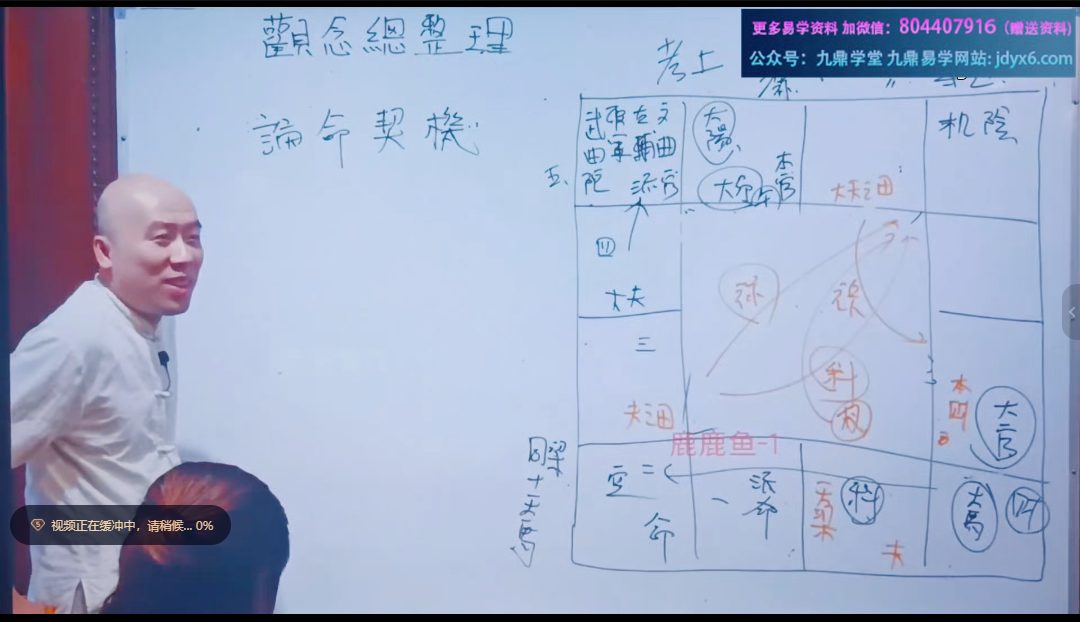 觀念總整理
論命契機
考上
更多易学资料 加微信：804407916（赠送资料）
公众号：九鼎学堂 九鼎易学网站：jdyx6.com
武曲陀
左輔
文曲
流
太陽
大命
本官
大夫之田
机 陰
五、
四
大夫
三
夫之田
祿
科
权
本
四
大官
鹿鹿鱼-1
同梁
十
天馬
空
二
命
一
派命
科
夫
天馬
四
视频正在缓冲中，请稍候... 0%